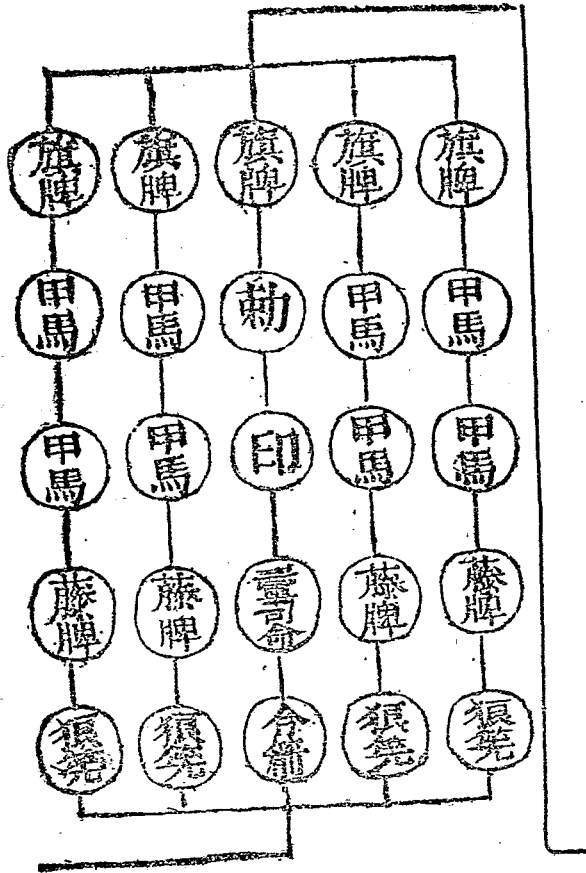 旗牌
甲馬
甲馬
藤牌
狼筅
旗牌
甲馬
甲馬
藤牌
狼筅
旗牌
勅
印
司命
令箭
旗牌
甲馬
甲馬
藤牌
狼筅
旗牌
甲馬
甲馬
藤牌
狼筅